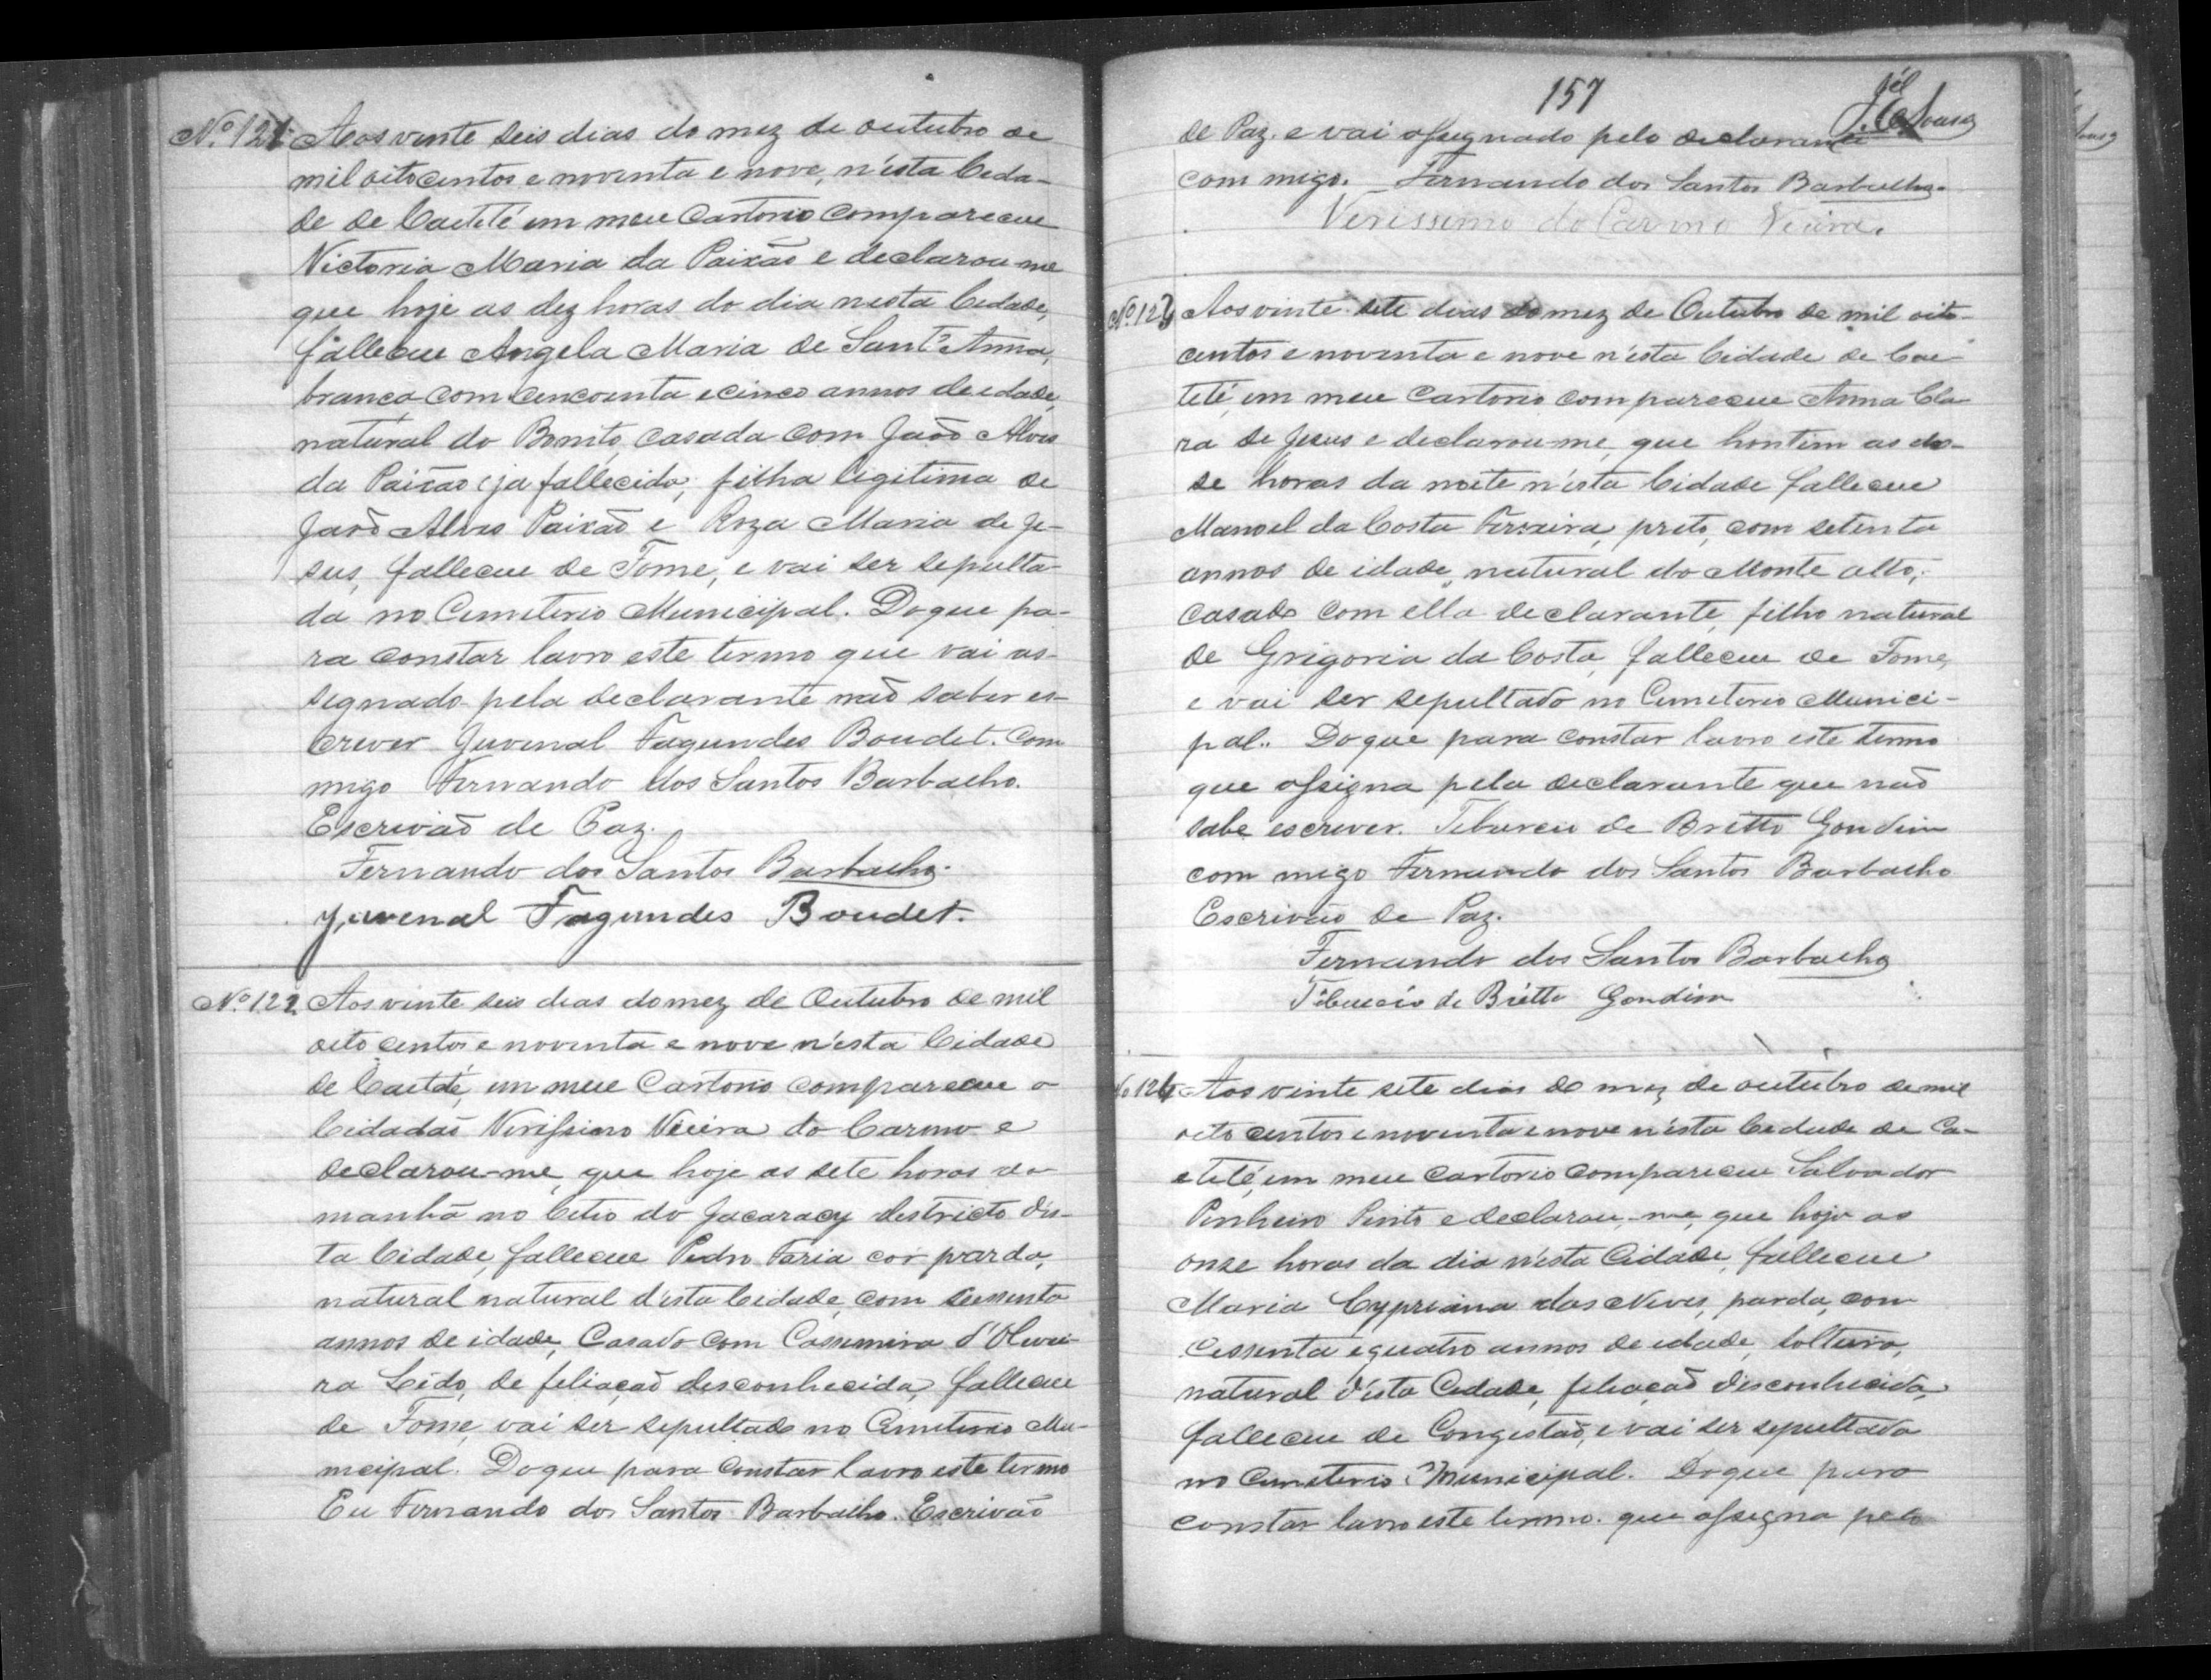 Nº 121 Aos vinte seis dias do mez de outubro de
mil oitocentos e noventa e nove, n'esta Cida-
de de Caeteté em meu Cartorio compareceu
Victoria Maria da Paixão e declarou-me
que hoje as dez horas do dia nesta Cidade,
falleceu Angela Maria de Sant'Anna,
branca com cincoenta e cinco annos de edade,
natural do Bonito, casada com João Alves
da Paixão ja fallecido; filha legitima de
João Alves Paixão e Roza Maria de Je-
sus, falleceu de Fome, e vai ser sepulta-
da no Cemiterio Municipal. Do que pa-
ra constar lavro este termo que vai as-
signado pela declarante não saber es-
crever Juvenal Fagundes Boudet. Com
migo Fernando dos Santos Barbalho.
Escrivão de Paz.
Fernando dos Santos Barbalho.
Juvenal Fagundes Boudet.
Nº 122 Aos vinte seis dias do mez de Outubro de mil
oito centos e noventa e nove n'esta Cidade
de Caeteté, em meu Cartorio compareceu o
Cidadão Verissimo Vieira do Carmo e
declarou-me, que hoje as sete horas da
manhã no Citio do Jacaracy districto des-
ta Cidade, falleceu Pedro Faria cor pardo,
natural natural d'esta Cidade, com sessenta
annos de idade, Casado com Cassimira d'Olivei-
ra Lédo, de filiação desconhecida, falleceu
de Fome, vai ser sepultado no Cemiterio Mu-
nicipal. Do que para constar lavro este termo
Eu Fernando dos Santos Barbalho. Escrivão
157
de Paz. e vai assignado pelo declarante
com migo. Fernando dos Santos Barbalho.
Verissimo do Carmo Vieira.
Nº 123 Aos vinte sete dias do mez de Outubro de mil oito-
centos e noventa e nove n'esta Cidade de Cae-
teté, em meu Cartorio compareceu Anna Cla-
ra de Jesus e declarou-me, que hontem as do-
se horas da noite n'esta Cidade falleceu
Manoel da Costa Ferreira, preto, com setenta
annos de idade, natural do Monte alto,
casado com ella declarante, filho natural
de Grigoria da Costa, falleceu de Fome,
e vai ser sepultado no Cemiterio Munici-
pal. Do que para constar lavro este termo
que assigna pela declarante que não
sabe escrever. Tiburcio de Britto Gondim
com migo Fernando dos Santos Barbalho
Escrivão de Paz.
Fernando dos Santos Barbalho
Tiburcio de Britto Gondim
No 124 Aos vinte sete dias do mez de outubro de mil
oito centos e noventa e nove n'esta Cidade de Ca-
eteté, em meu cartorio compareceu Salvador
Pinheiro Pinto e declarou-me, que hoje as
onze horas da dia n'esta Cidade, falleceu
Maria Cypriana das Neves, parda, com
Cessenta e quatro annos de edade, solteira,
natural d'esta Cidade, filiação disconhecida,
falleceu de Congestão, e vai ser sepultada
no Cemiterio Municipal. Do que para
constar lavro este termo. que assigna pelo